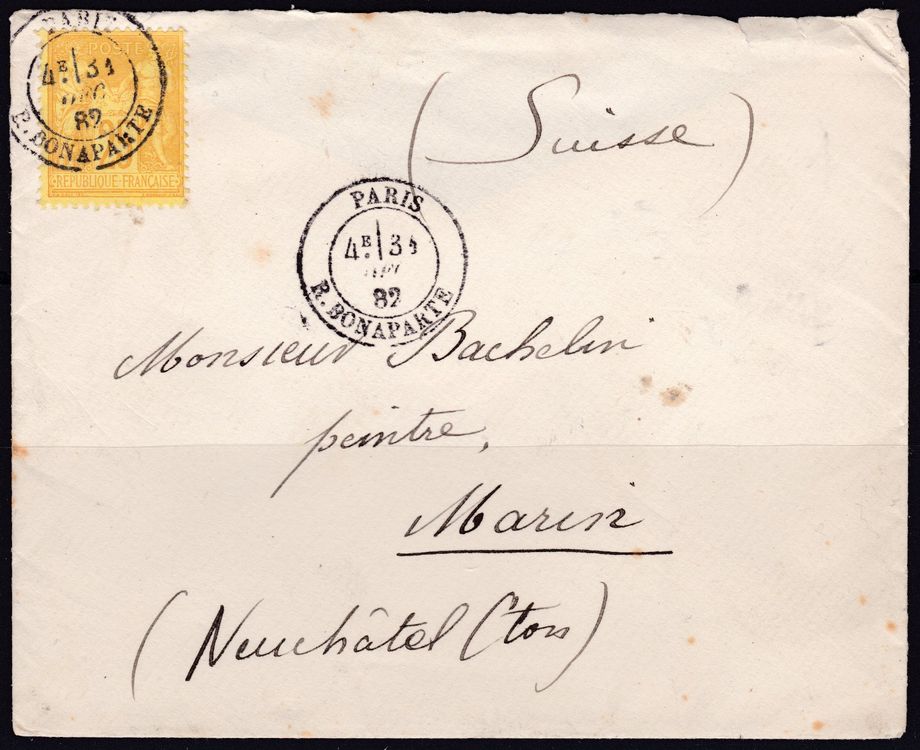 PARIS
POSTE
4E 31
DEC
82
R. BONAPARTE
25
REPUBLIQUE FRANCAISE
(Suisse)
PARIS
4E 31
DEC
82
R. BONAPARTE
Monsieur Bachelin
peintre,
Marin
(Neuchâtel Cton)